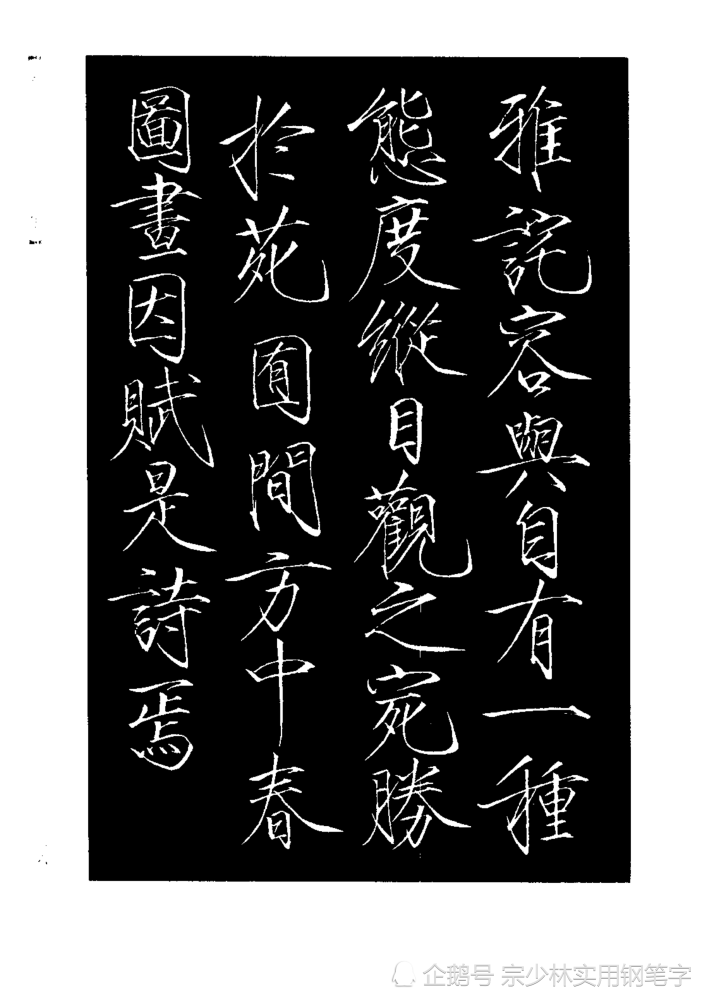 雅詫容與自有一種
態度縱目觀之宛勝
於苑囿間方中春
圖畫因賦是詩焉
企鹅号 宗少林实用钢笔字